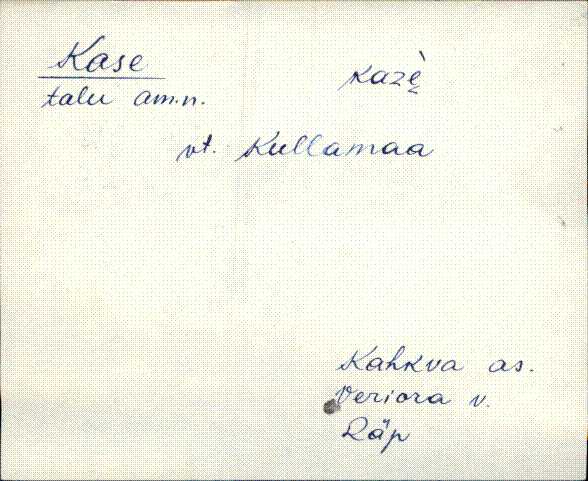 Kase kazè̬
talu am.n.
vt. Kullamaa
Kahkva as.
Veriora v.
Räp